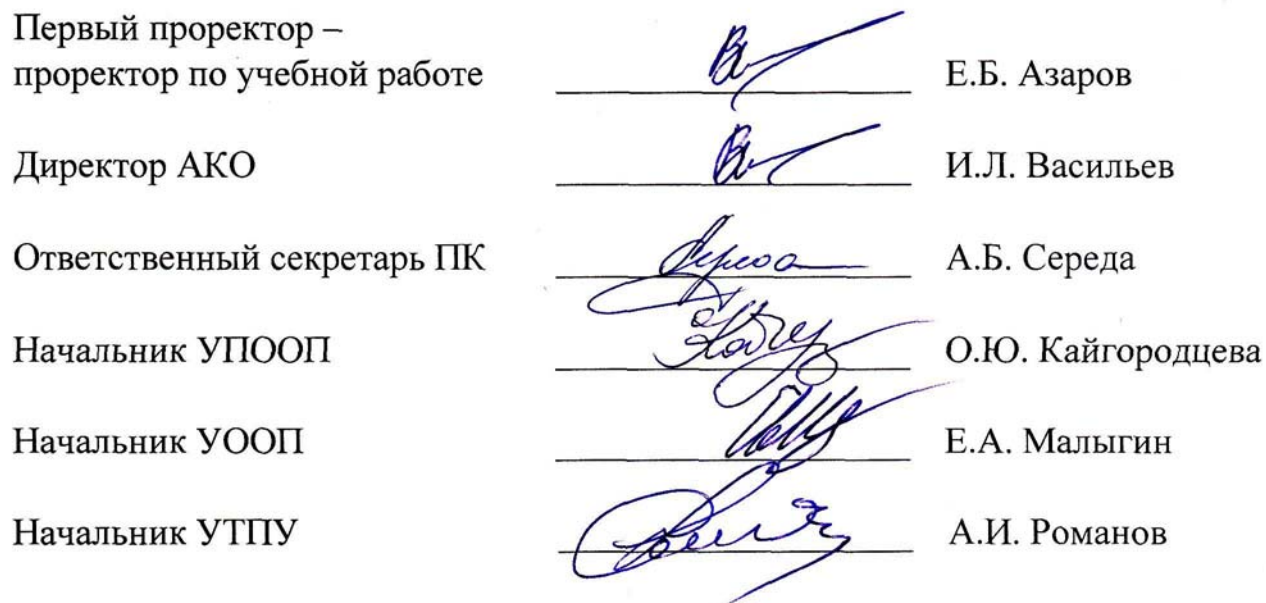 Первый проректор –
проректор по учебной работе Е.Б. Азаров
Директор АКО И.Л. Васильев
Ответственный секретарь ПК А.Б. Середа
Начальник УПООП О.Ю. Кайгородцева
Начальник УООП Е.А. Малыгин
Начальник УТПУ А.И. Романов